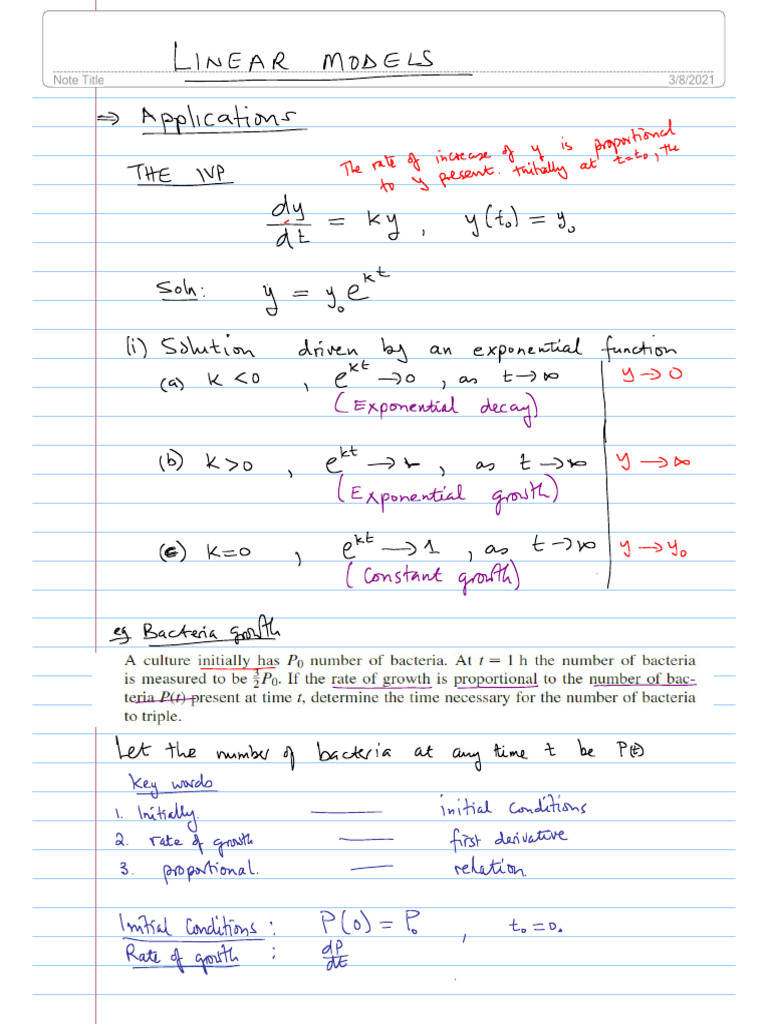 LINEAR MODELS
Note Title
3/8/2021
⇒ Applications
The rate of increase of y is proportional
to y present. Initially at t=t₀, the
THE IVP
dy/dt = ky , y(t₀) = y₀
Soln: y = y₀e^{kt}
(i) Solution driven by an exponential function
(a) k < 0 , e^{kt} → 0 , as t → ∞ | y → 0
(Exponential decay)
(b) k > 0 , e^{kt} → ∞ , as t → ∞ | y → ∞
(Exponential growth)
(c) k = 0 , e^{kt} → 1 , as t → ∞ | y → y₀
(Constant growth)
eg Bacteria growth
A culture initially has P₀ number of bacteria. At t = 1 h the number of bacteria
is measured to be 3/2 P₀. If the rate of growth is proportional to the number of bac-
teria P(t) present at time t, determine the time necessary for the number of bacteria
to triple.
Let the number of bacteria at any time t be P(t)
Key words
1. Initially. — initial conditions
2. rate of growth — first derivative
3. proportional. — relation
Initial Conditions : P(0) = P₀ , t₀ = 0.
Rate of growth : dP/dt